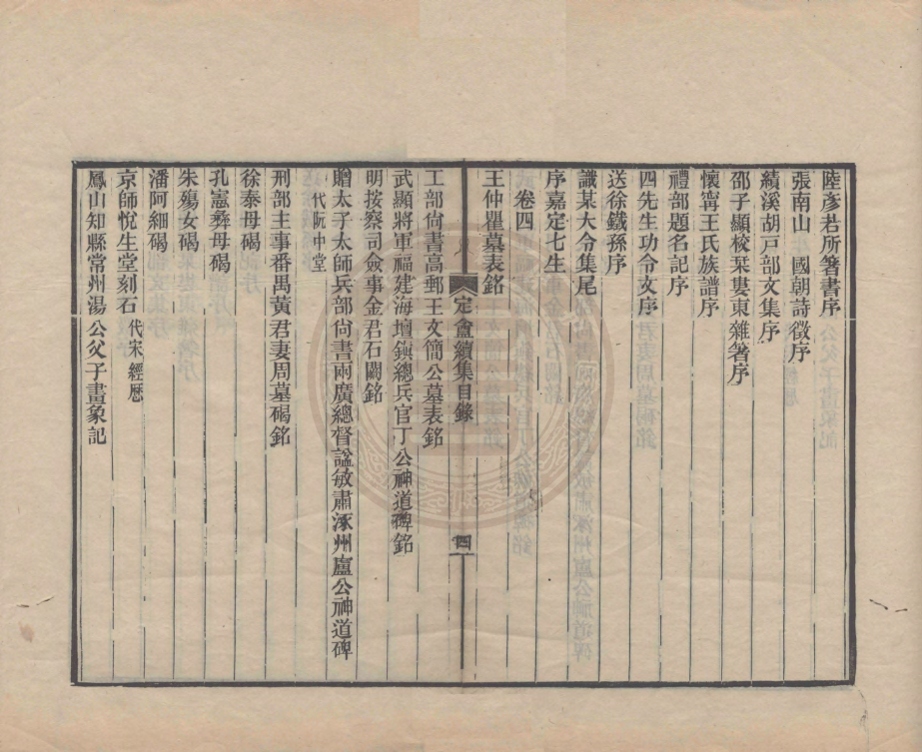 陸彥若所箸書序
張南山　國朝詩徵序
績溪胡戸部文集序
邵子顯校栞婁東雜箸序
懷甯王氏族譜序
禮部題名記序
四先生功令文序
送徐鐵孫序
識某大令集尾
序嘉定七生
卷四
王仲瞿墓表銘
定盦續集目錄
四
工部尚書高郵王文簡公墓表銘
武顯將軍福建海壇鎭總兵官丁公神道碑銘
明按察司僉事金君石闕銘
贈太子太師兵部尚書兩廣總督諡敏肅涿州盧公神道碑
代阮中堂
刑部主事番禺黃君妻周墓碣銘
徐泰母碣
孔憲彝母碣
朱殤女碣
潘阿細碣
京師悅生堂刻石 代宋經厯
鳳山知縣常州湯公父子畫象記